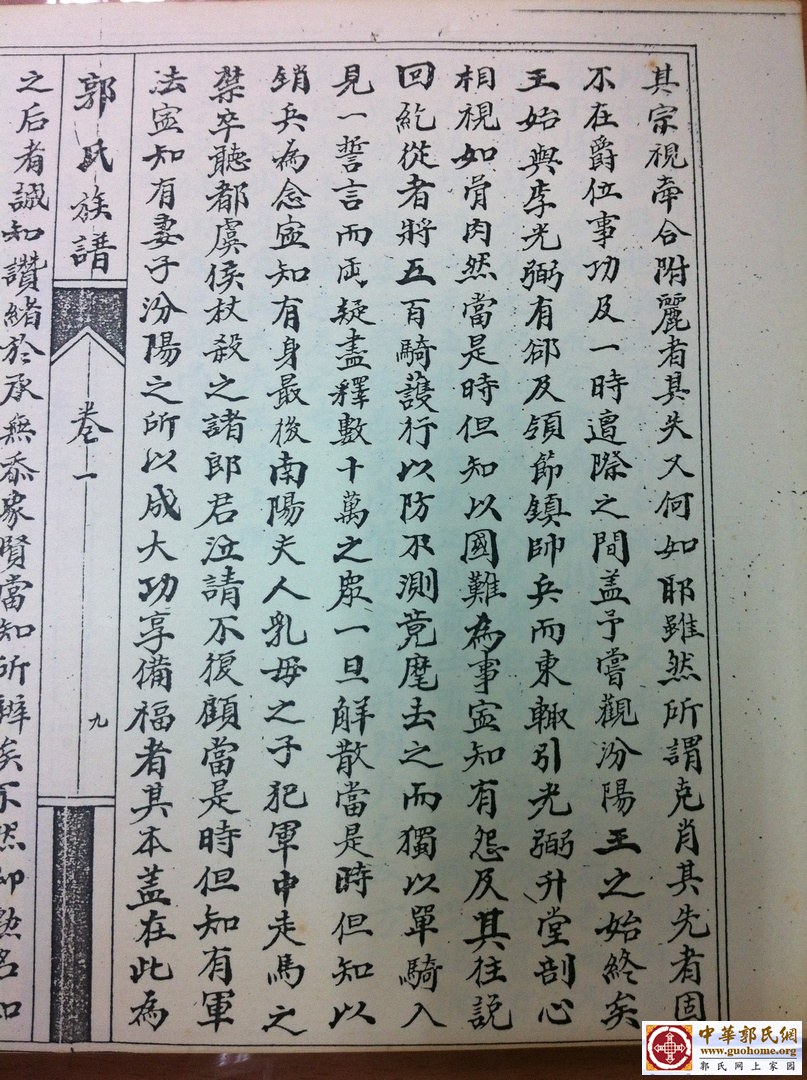 其宗視牽合附麗者其失又何如耶雖然所謂克肖其先者固
不在爵位事功及一時遭際之間盖予嘗觀汾陽王之始終矣
王始與李光弼有郤及領節鎮帥兵而東輙引光弼升堂剖心
相視如骨肉然當是時但知以國難為事寍知有怨及其往說
回紇從者將五百騎護行以防不測竟麾去之而獨以單騎入
見一誓言而両疑盡釋數十萬之衆一旦解散當是時但知以
銷兵為念寍知有身最後南陽夫人乳母之子犯軍中走馬之
禁卒聽都虞侯杖殺之諸郎君泣請不復顧當是時但知有軍
法寍知有妻子汾陽之所以成大功享備福者其本盖在此為
郭氏族譜
卷一
九
之后者誠知讚緒於承無忝家賢當知所辨矣不然
中華郭氏網
www.guohome.org
郭氏网上家园